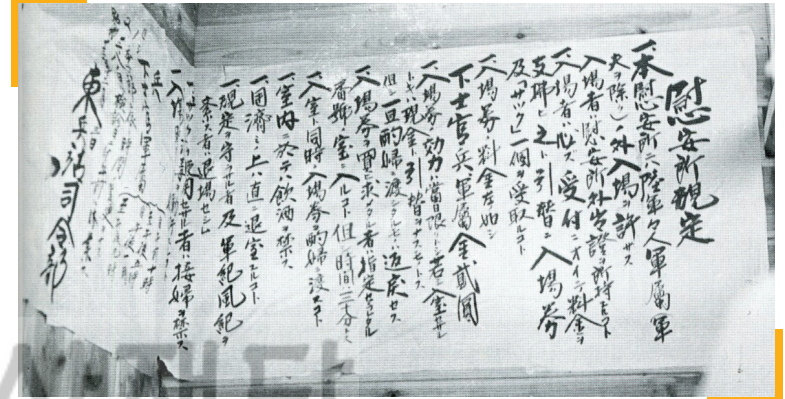 慰安所規定
一、本慰安所ニハ陸軍々人軍属（軍
夫ヲ除ク）ノ外入場ヲ許サス
入場者ハ慰安所外出證ヲ所持スルコト
一、入場者ハ必ス受付ニオイテ料金ヲ
支拂ヒ之ト引替ニ入場券
及「サック」一個ヲ受取ルコト
一、入場券ノ料金左ノ如シ
下士官兵軍属金貳圓
一、入場券ノ効力ハ當日限リトシ若シ入室セサル
トキハ現金ト引替ヲナスモノトス
但シ一旦酌婦ニ渡シタルモノハ返戻セス
一、入場券ヲ買ヒ求メタル者ハ指定セラレタル
番號ノ室ニ入ルコト但シ時間ハ三十分トス
一、入室ト同時ニ入場券ヲ酌婦ニ渡スコト
一、室内ニ於テハ飲酒ヲ禁ス
一、用濟ミノ上ハ直ニ退室スルコト
一、規定ヲ守ラサル者及軍紀風紀ヲ
紊ス者ハ退場セシム
一、サックヲ使用セサル者ハ接婦ヲ禁ス
一、入場
兵
下士官軍属
東兵站司令部